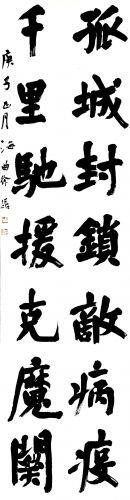 孤城封鎖敵病疫
千里馳援克魔關
庚子正月海曲徐